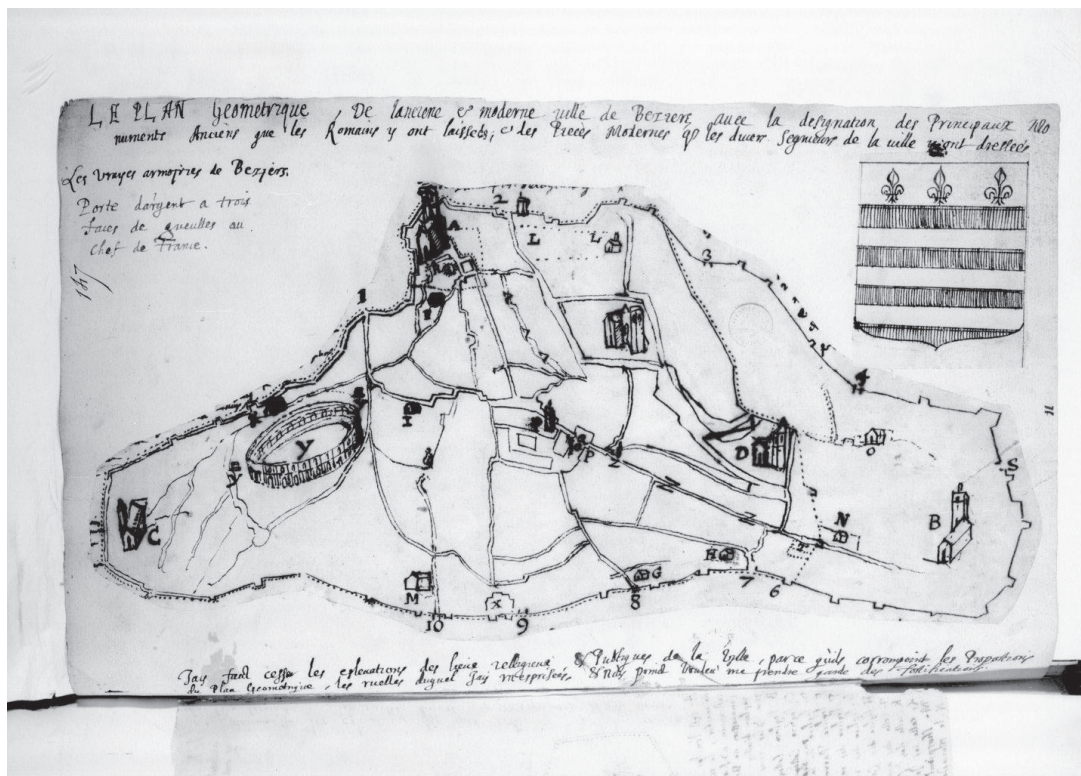 LE PLAN Geometrique, De lanciene & moderne ville de Beziers, avec la designation des Principaux Mo
numents Anciens que les Romains y ont laissées, & des Pieces Modernes q̃ les divers Segnieurs de la ville ont dressées
Les vrayes armoiries de Beziers.
Porte dargent a trois
faces de gueulles au
chef de France.
147
A
2
L
L
3
1
4
Y
I
P
P
Z
D
O
S
C
N
B
H
G
M
X
7
6
8
10
9
11
Jay faict cesser les explications des lieux religieux & Publiques de la Ville, parce quils corrompoint les
du Plan Geometrique, les ruelles duquel Jay mesprisées, & Nay point voulu me prendre garde des fortifications.